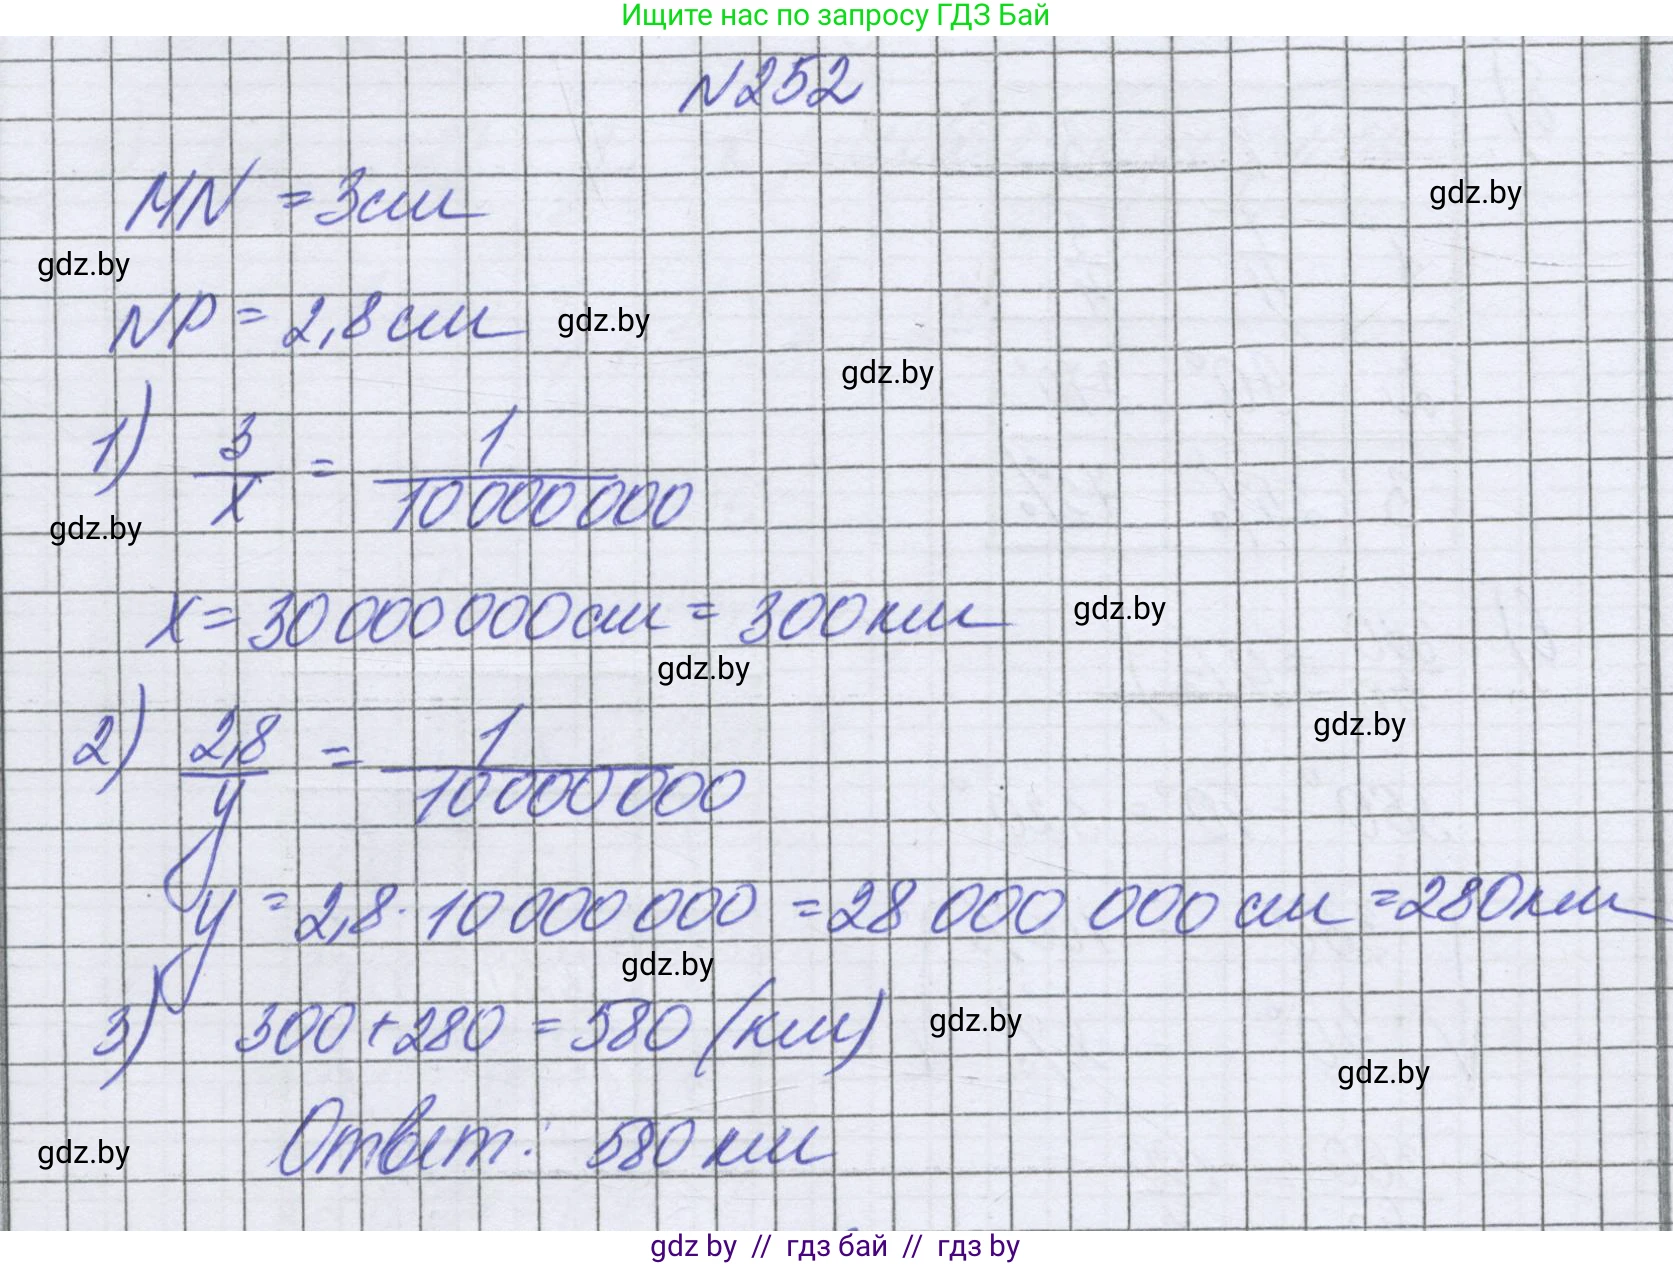 Ищите нас по запросу ГДЗ Бай
N252
MN = 3см
gdz.by
gdz.by
NP = 2,8 см
gdz.by
gdz.by
1) 3/x = 1/10 000 000
gdz.by
x = 30 000 000 см = 300 км
gdz.by
gdz.by
2) 2,8/y = 1/10 000 000
gdz.by
y = 2,8 · 10 000 000 = 28 000 000 см = 280 км
gdz.by
3) 300 + 280 = 580 (км)
gdz.by
gdz.by
Ответ: 580 км
gdz.by
gdz by // гдз бай // гдз by